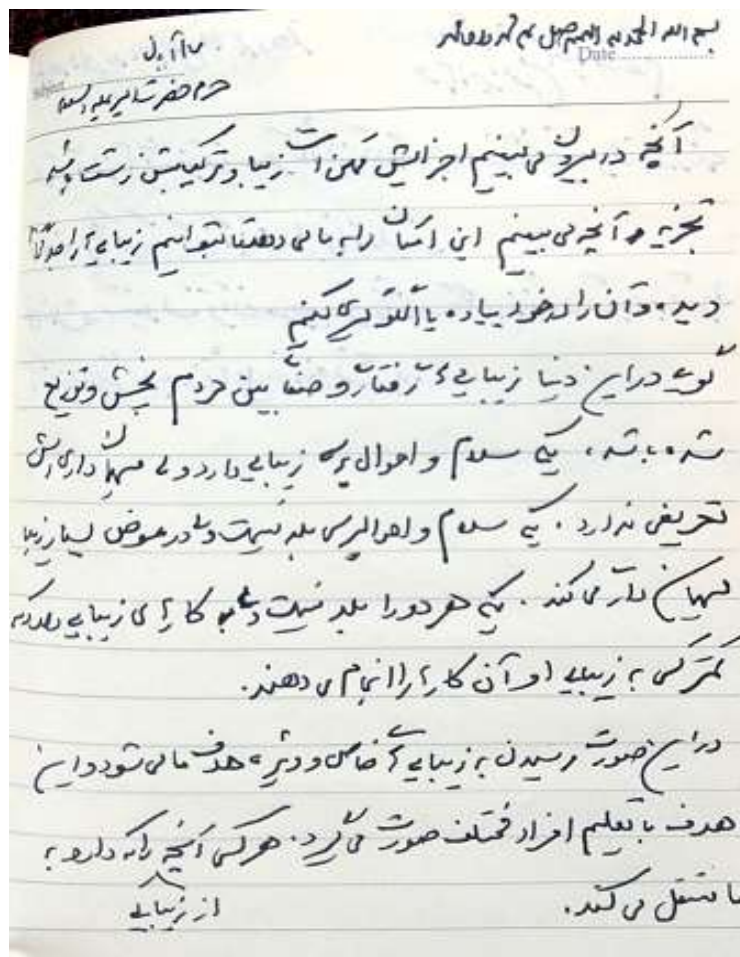 بسم الله الحمدلله اللهم صل علی محمد و آل محمد
Date
۱۰ آبان
حرم حضرت امیر علیه السلام
آنچه در بیرون می‌بینیم اجزایش ممکن است زیبا و ترکیبش زشت باشد
تجزیه آنچه می‌بینیم این امکان را به ما می‌دهد تا بتوانیم زیبایی را جداگانه
دیده و آن را در خود پیاده یا الگوگیری کنیم
گویی در این دنیا زیبایی‌های رفتار و صفات بین مردم پخش و توزیع
شده باشد، یکی سلام و احوال پرسی زیبایی دارد ولی میهمان داری‌اش
تعریفی ندارد. یکی سلام و احوالپرسی بلد نیست ولی در عوض بسیار زیبا
میهمان داری می‌کند. یکی هر دو را بلد نیست ولی کارهای زیبایی دارد که
کمتر کسی به زیبایی او آن کارها را انجام می‌دهند.
در این صورت رسیدن به زیبایی‌های خاص و ویژه هدف ما می‌شود و این
هدف با تعلیم افراد مختلف صورت می‌گیرد. هر کس آنچه را که دارد به
از زیبایی
ما منتقل می‌کند.